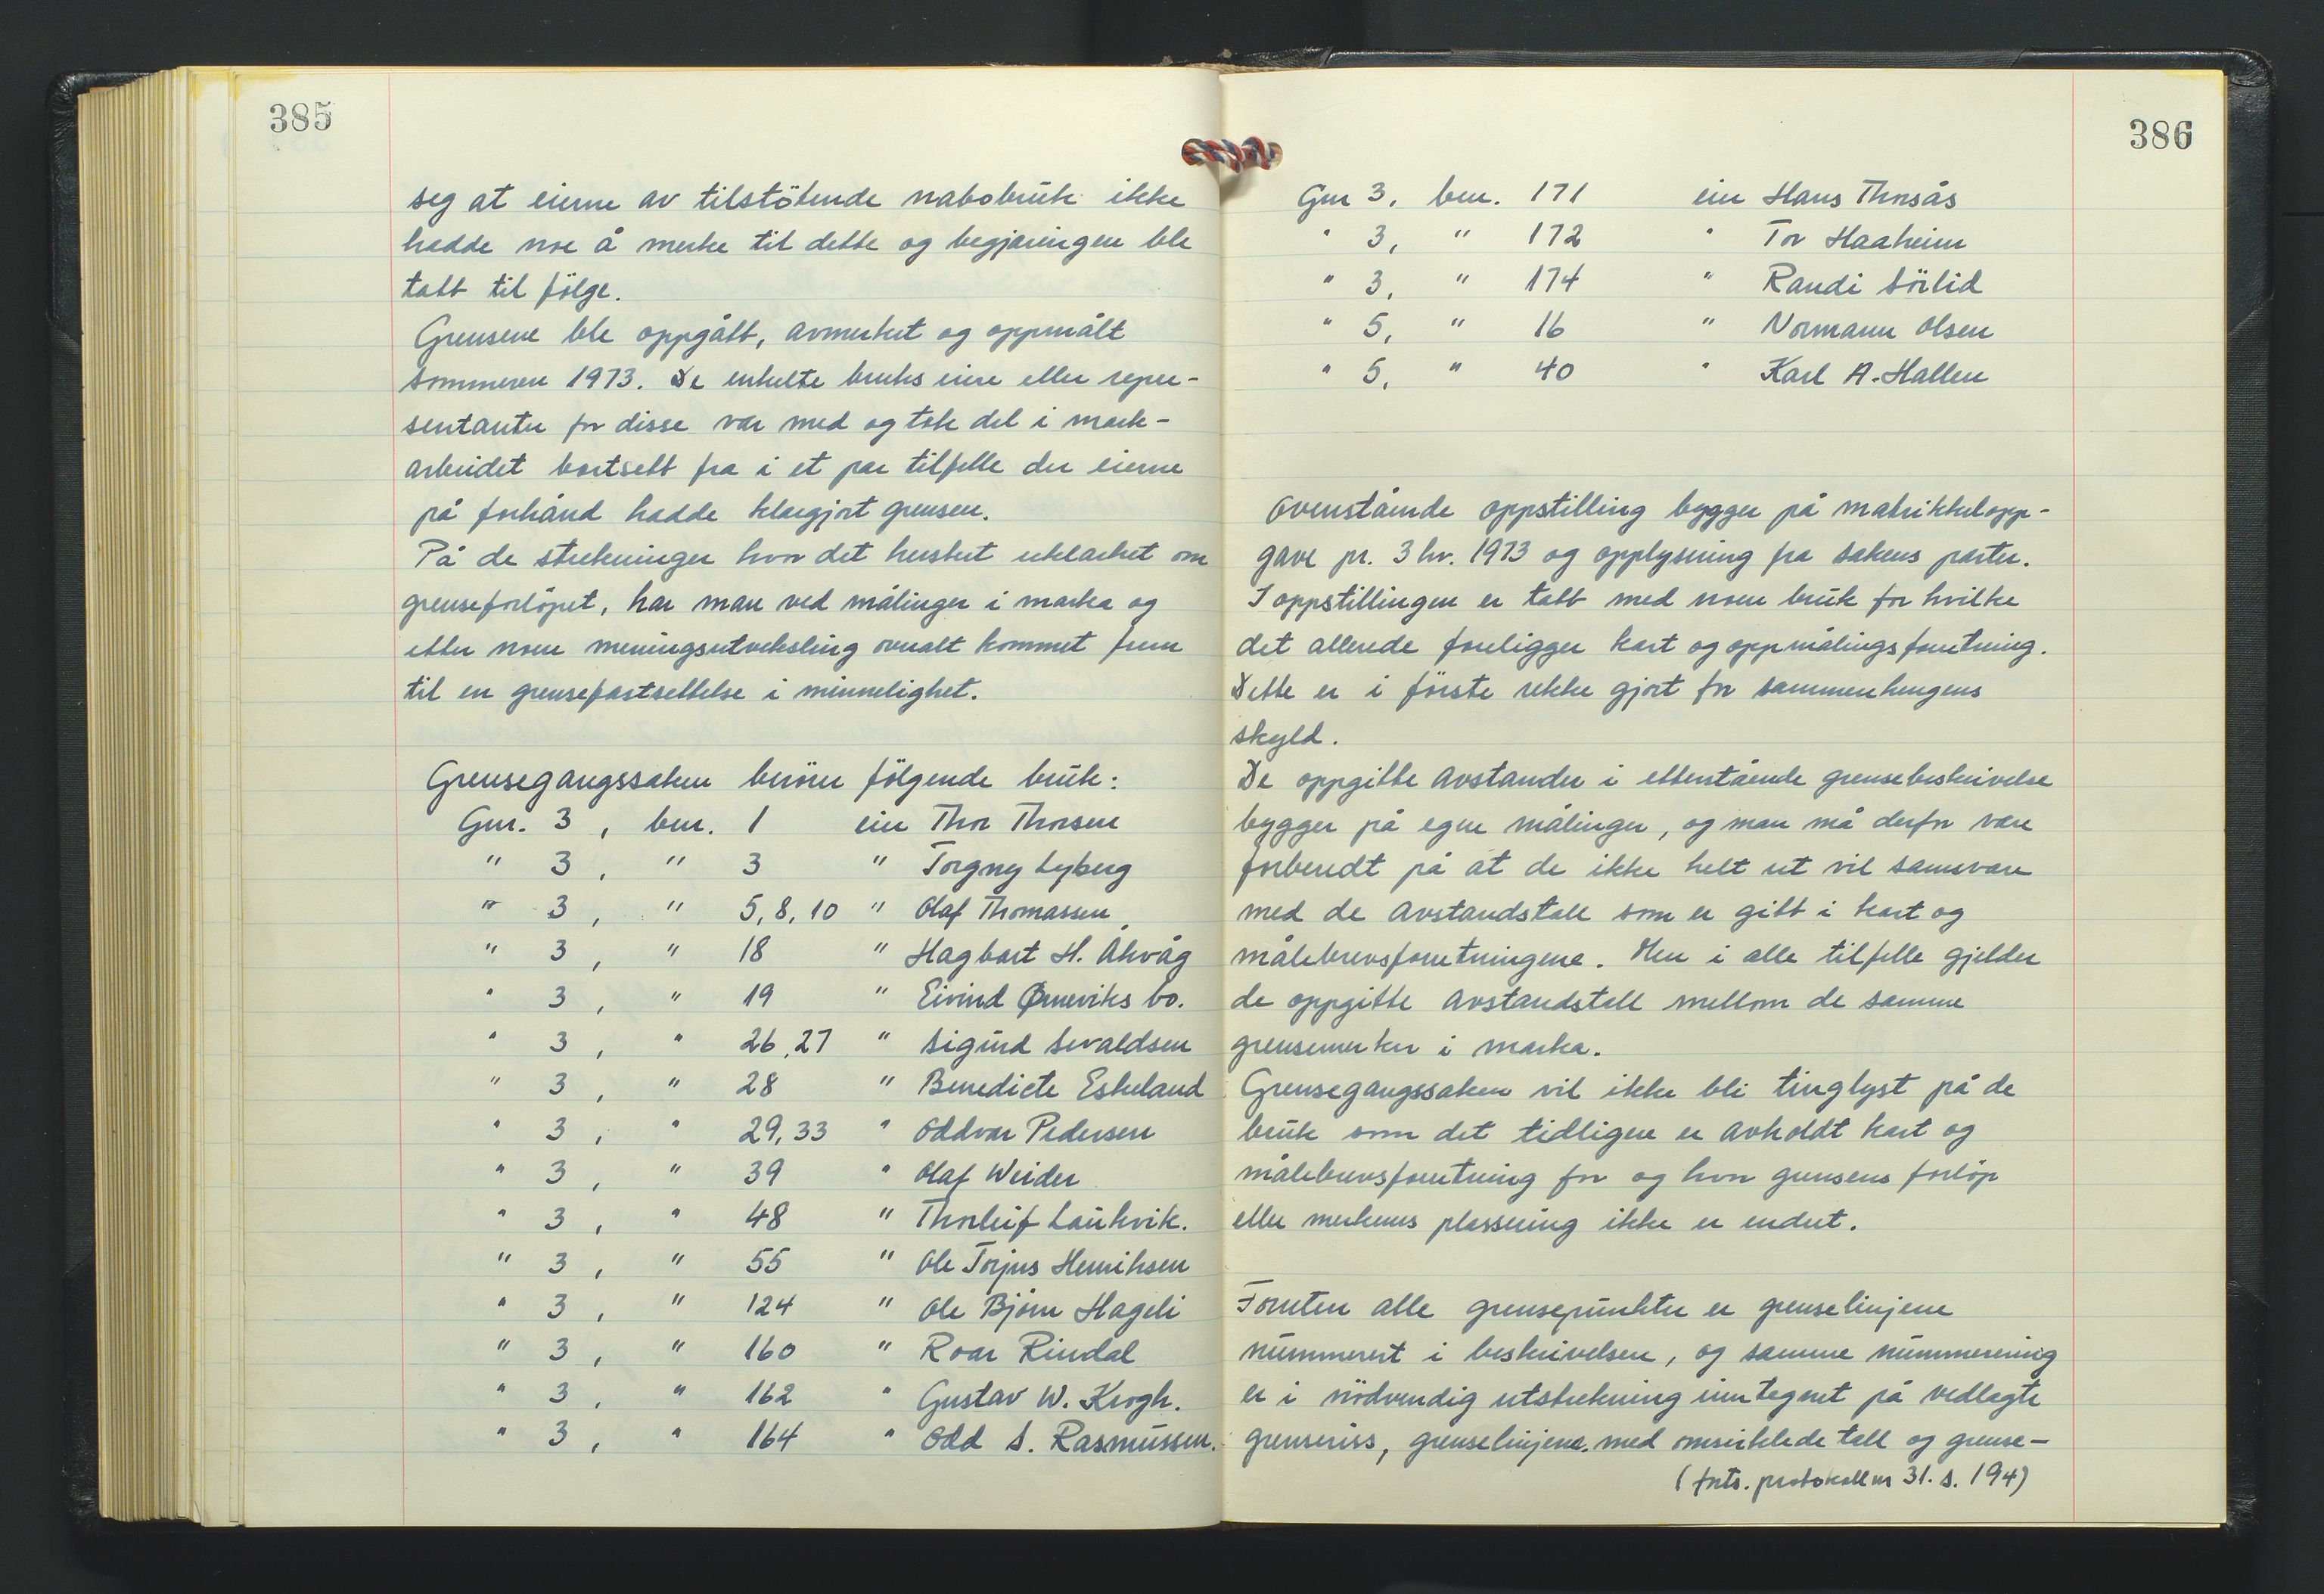 385
seg at eierne av tilstötende nabobruk ikke
hadde noe å merke til dette og begjæringen ble
tatt til fölge.
Grensene ble oppgått, avmerket og oppmålt
sommeren 1973. De enkelte bruks eiere eller repre-
sentanter for disse var med og tok del i mark-
arbeidet bortsett fra i et par tilfelle der eierne
på forhånd hadde klargjort grensen.
På de strekninger hvor det hersket uklarhet om
grenseforlöpet, har man ved målinger i marka og
etter noen meningsutveksling overalt kommet frem
til en grensefastsettelse i minnelighet.
Grensegangssaken berörer fölgende bruk:
Gnr. 3, bnr. 1 eier Thor Thorsen
" 3, " 3 " Torgny Lyberg
" 3, " 5, 8, 10 " Olaf Thomassen
" 3, " 18 " Hagbart H. Åkvåg
" 3, " 19 " Eivind Ørneviks bo.
" 3, " 26, 27 " Sigurd Sevaldsen
" 3, " 28 " Benedicte Eskeland
" 3, " 29, 33 " Oddvar Pedersen
" 3, " 39 " Olaf Weider
" 3, " 48 " Thorleif Laukvik.
" 3, " 55 " Ole Torjus Henriksen
" 3, " 124 " Ole Björn Hageli
" 3, " 160 " Roar Rindal
" 3, " 162 " Gustav W. Krogh.
" 3, " 164 " Odd S. Rasmussen.
386
Gnr 3, bnr. 171 eier Hans Thorsås
" 3, " 172 " Tor Haaheim
" 3, " 174 " Randi Sörlid
" 5, " 16 " Normann Olsen
" 5, " 40 " Karl A. Hallen
Ovenstående oppstilling bygger på matrikkelopp-
gave pr. 3 kv. 1973 og opplysning fra sakens parter.
I oppstillingen er tatt med noen bruk for hvilke
det allerede foreligger kart og oppmålingsforretning.
Dette er i förste rekke gjort for sammenhengens
skyld.
De oppgitte avstander i etterstående grensebeskrivelse
bygger på egne målinger, og man må derfor være
forberedt på at de ikke helt ut vil samsvare
med de avstandstall som er gitt i kart og
målebrevsforretningene. Men i alle tilfelle gjelder
de oppgitte avstandstall mellom de samme
grensemerker i marka.
Grensegangssaken vil ikke bli tinglyst på de
bruk som det tidligere er avholdt kart og
målebrevsforretning for og hvor grensens forlöp
eller merkenes plassering ikke er endret.
Foruten alle grensepunkter er grenselinjene
nummerert i beskrivelsen, og samme nummerering
er i nödvendig utstrekning inntegnet på vedlagte
grenseriss, grenselinjene med omsirklede tall og grense-
(forts. protokoll nr 31. s. 194)